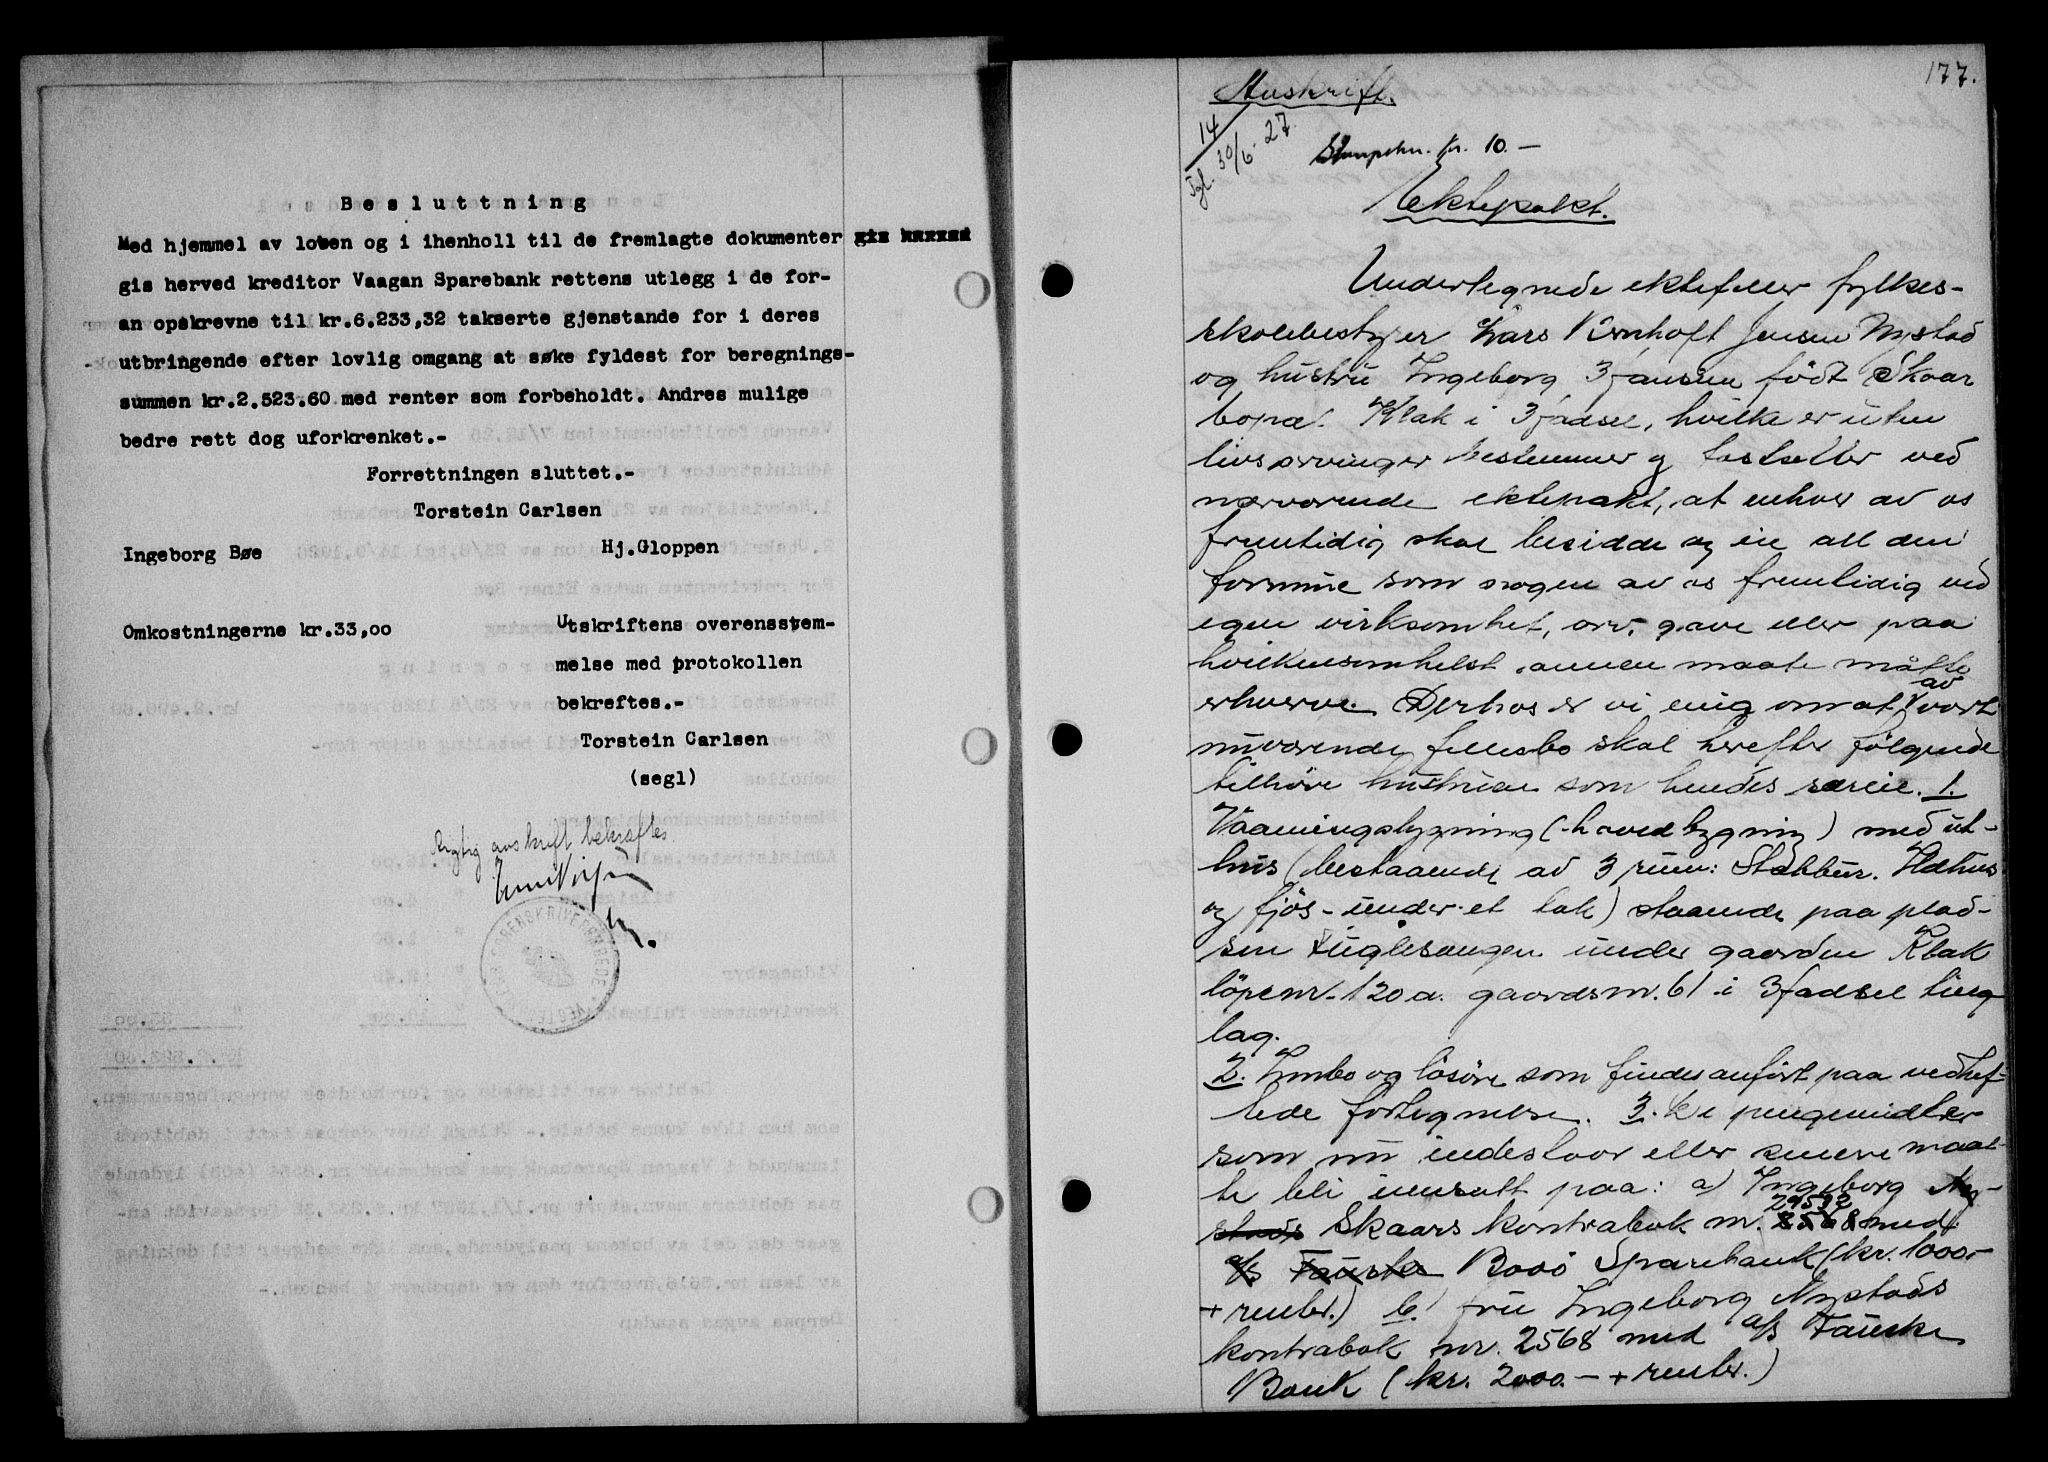 Besluttning
Med hjemmel av loven og i ihenholl til de fremlagte dokumenter
gis herved kreditor Vaagan Sparebank rettens utlegg i de for-
an opskrevne til kr.6.233,32 takserte gjenstande for i deres
utbringende efter lovlig omgang at søke fyldest for beregnings-
summen kr.2.523.60 med renter som forbeholdt. Andres mulige
bedre rett dog uforkrenket.-
Forrettningen sluttet.-
Torstein Carlsen
Ingeborg Bøe
Hj.Gloppen
Omkostningerne kr.33,oo
Utskriftens overensstem-
melse med protokollen
bekreftes.-
Torstein Carlsen
(segl)
Rigtig avskrift bekræftes.
177.
Avskrift.
14
Tgl. 30/6-27.
Stempelm. kr. 10.-
Ektepakt.
Undertegnede ektefeller fylkes-
skolebestyrer Lars Bernhoft Jensen Nystad
og hustru Ingeborg født Skaar
bopæl Klak i Skjærstad, hvilke er uten
livsarvinger bestemmer og fastsetter ved
nærværende ektepakt, at enhver av os
fremtidig skal besidde og eie all den
formue som nogen av os fremtidig ved
egen virksomhet, arv, gave eller paa
hvilkensomhelst annen maate måtte
erhverve. Derhos er vi enig om at av vort
nuværende fellesbo skal herefter følgende
tilhøre hustruen som hendes særeie. 1.
Vaaningsbygning (hovedbygning) med ut-
hus (bestaaende av 3 rum: Stabbur. Ildhus
og fjøs - under et tak) staaende paa plad-
sen Fuglesangen under gaarden Klak
løpenr. 120 a. gaardsnr. 61 i ting-
lag.
2. Innbo og løsøre som findes anført paa vedhef-
tede fortegnelse. 3. De pengemidler
som nu indestaar eller senere maat-
te bli innsatt paa: a) Ingeborg Ny-
stads Skaars kontrabok nr. 29592 2568 med
a/s Fauske Bodø Sparebank (kr. 1000-
+ renter.) b) fru Ingeborg Nystads
kontrabok nr. 2568 med a/s Fauske
Bank (kr. 2000.- + renter.)